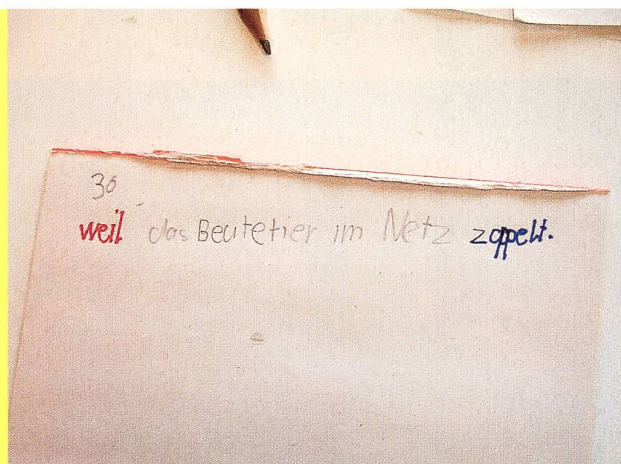 30
weil das Beutetier im Netz zappelt.